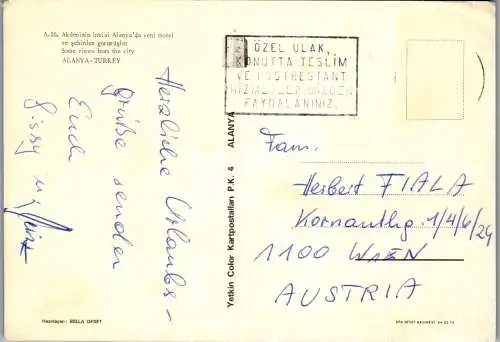 A-16. Akdenizin incisi Alanya'da yeni motel
ve şehirden görünüşler
Some views from the city
ALANYA-TURKEY
Herzliche Urlaubs-
grüße senden
Euch
Sissy u.
Hazırlayan: BELLA OFSET
Yetkin Color Kartpostalları P.K. 4 ALANYA
ÖZEL ULAK,
KONUTTA TESLİM
VE POSTRESTANT
HİZMETLERİMİZDEN
FAYDALANINIZ.
Fam.
Herbert FIALA
Kornauthg. 1/4/6/24
1100 WIEN
AUSTRIA